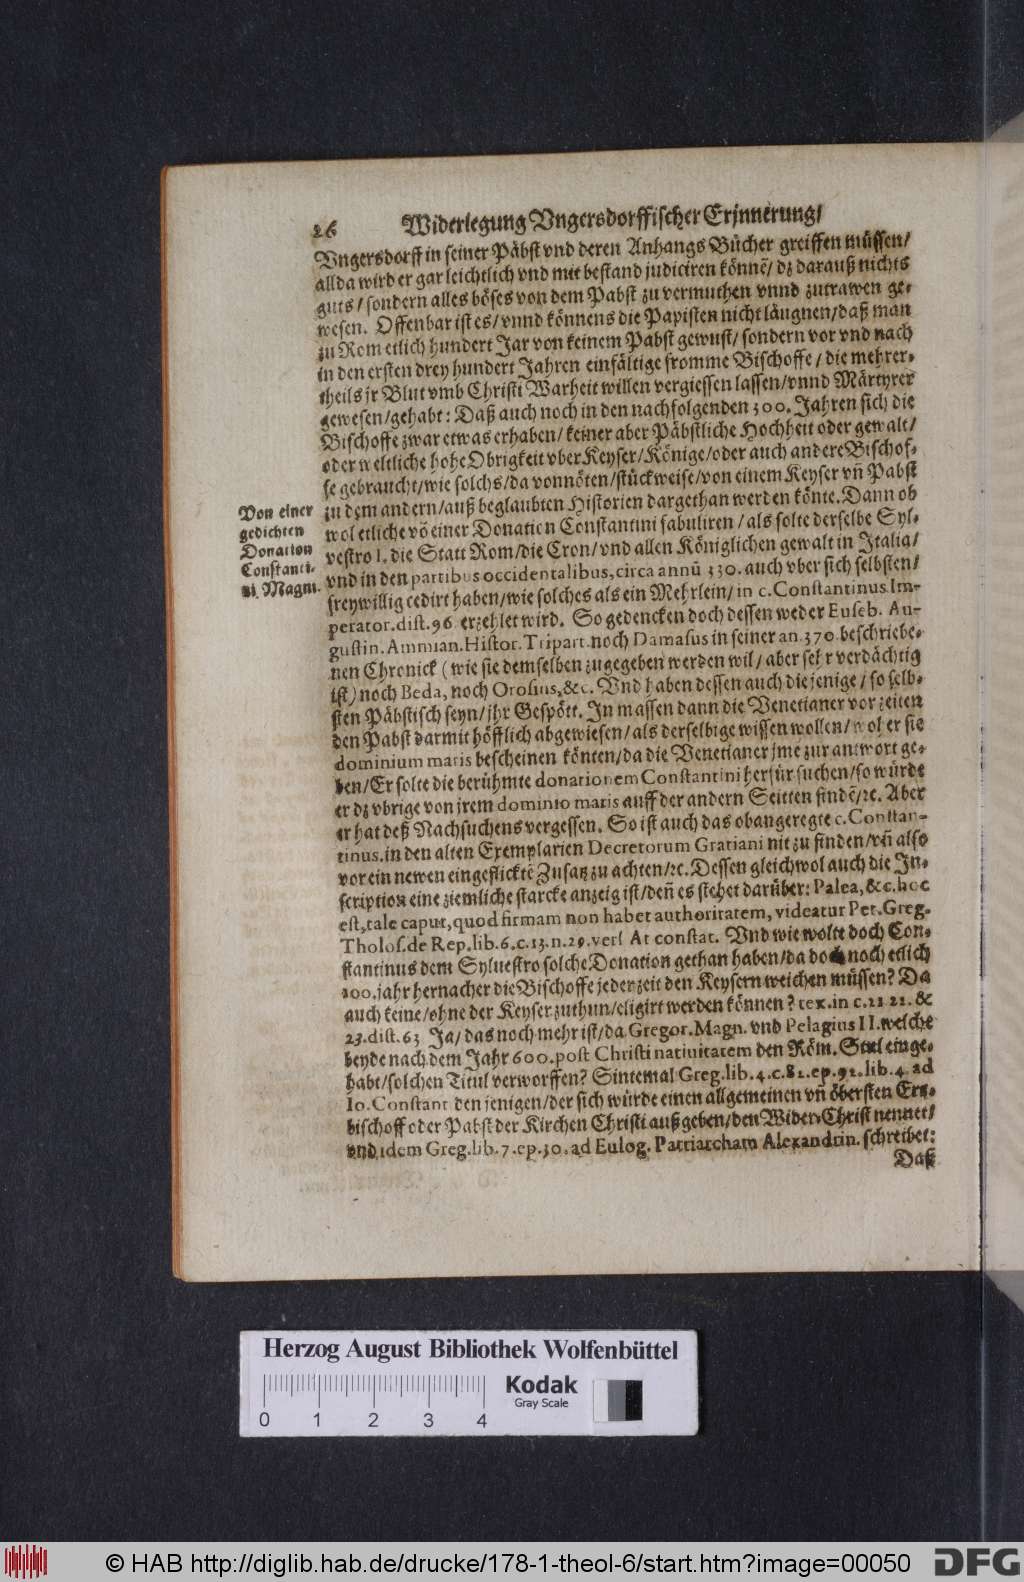 26 Widerlegung Vngersdorffischer Erjnnerung/
Vngersdorff in seiner Päbst vnd deren Anhangs Bücher greiffen müssen/
allda wird er gar leichtlich vnd mit bestand judiciren könnẽ/ dz darauß nichts
guts/ sondern alles böses von dem Pabst zu vermuthen vnnd zutrawen ge-
wesen. Offenbar ist es/ vnnd könnens die Papisten nicht läugnen/ daß man
zu Rom etlich hundert Jar von keinem Pabst gewust/ sondern vor vnd nach
in den ersten drey hundert Jahren einfältige fromme Bischoffe/ die mehrer-
theils jr Blut vmb Christi Warheit willen vergiessen lassen/ vnnd Märtyrer
gewesen/ gehabt: Daß auch noch in den nachfolgenden 300. Jahren sich die
Bischoffe zwar etwas erhaben/ keiner aber Päbstliche Hochheit oder gewalt/
oder weltliche hohe Obrigkeit vber Keyser/ Könige/ oder auch andere Bischof-
fe gebraucht/ wie solchs/ da vonnöten/ stückweise/ von einem Keyser vñ Pabst
zu dem andern/ auß beglaubten Historien dargethan werden könte. Dann ob
wol etliche võ einer Donation Constantini fabuliren/ als solte derselbe Syl-
vestro I. die Statt Rom/ die Cron/ vnd allen Königlichen gewalt in Italia/
vnd in den partibus occidentalibus, circa annū 330. auch vber sich selbsten/
freywillig cedirt haben/ wie solches als ein Mehrlein/ in c. Constantinus Im-
perator. dist. 96 erzehlet wird. So gedencken doch dessen weder Euseb. Au-
gustin. Ammian. Histor. Tripart. noch Damasus in seiner an. 370. beschriebe-
nen Chronick (wie sie demselben zugegeben werden wil/ aber sehr verdächtig
ist) noch Beda, noch Orosius, &c. Vnd haben dessen auch die jenige/ so selb-
sten Päbstisch seyn/ jhr Gespött. In massen dann die Venetianer vor zeiten
den Pabst darmit höfflich abgewiesen/ als derselbige wissen wollen/ woher sie
dominium maris bescheinen könten/ da die Venetianer jme zur antwort ge-
ben/ Er solte die berühmte donationem Constantini herfür suchen/ so würde
er dz vbrige von jrem dominio maris auff der andern Seitten findẽ/ ꝛc. Aber
er hat deß Nachsuchens vergessen. So ist auch das obangeregte c. Constan-
tinus. in den alten Exemplarien Decretorum Gratiani nit zu finden/ vñ also
vor ein newen eingeflicktẽ Zusatz zu achten/ ꝛc. Dessen gleichwol auch die In-
scription eine ziemliche starcke anzeig ist/ deñ es stehet darüber: Palea, &c. hoc
est, tale caput, quod firmam non habet authoritatem, videatur Pet. Greg.
Tholos. de Rep. lib. 6. c. 13. n. 29. vers. At constat. Vnd wie wolte doch Con-
stantinus dem Syluestro solche Donation gethan haben/ da doch noch etlich
100. jahr hernacher die Bischoffe jederzeit den Keysern weichen müssen? Da
auch keine/ ohne der Keyser zuthun/ eligirt werden können? tex. in c. 21 22. &
23. dist. 63 Ja/ das noch mehr ist/ da Gregor. Magn. vnd Pelagius II. welche
beyde nach dem Jahr 600. post Christi natiuitatem den Röm. Stul einge-
habt/ solchen Titul verworffen? Sintemal Greg. lib. 4. c. 82. ep. 92. lib. 4. ad
Io. Constant den jenigen/ der sich würde einen allgemeinen vñ öbersten Ertz-
bischoff oder Pabst der Kirchen Christi auß geben/ den Wider-Christ nennet/
vnd idem Greg. lib. 7. ep. 30. ad Eulog. Patriarcham Alexandrin. schreibet:
Daß
Von einer
gedichten
Donation
Constanti-
ni Magni.
Herzog August Bibliothek Wolfenbüttel
Kodak
Gray Scale
0 1 2 3 4
© HAB http://diglib.hab.de/drucke/178-1-theol-6/start.htm?image=00050
DFG